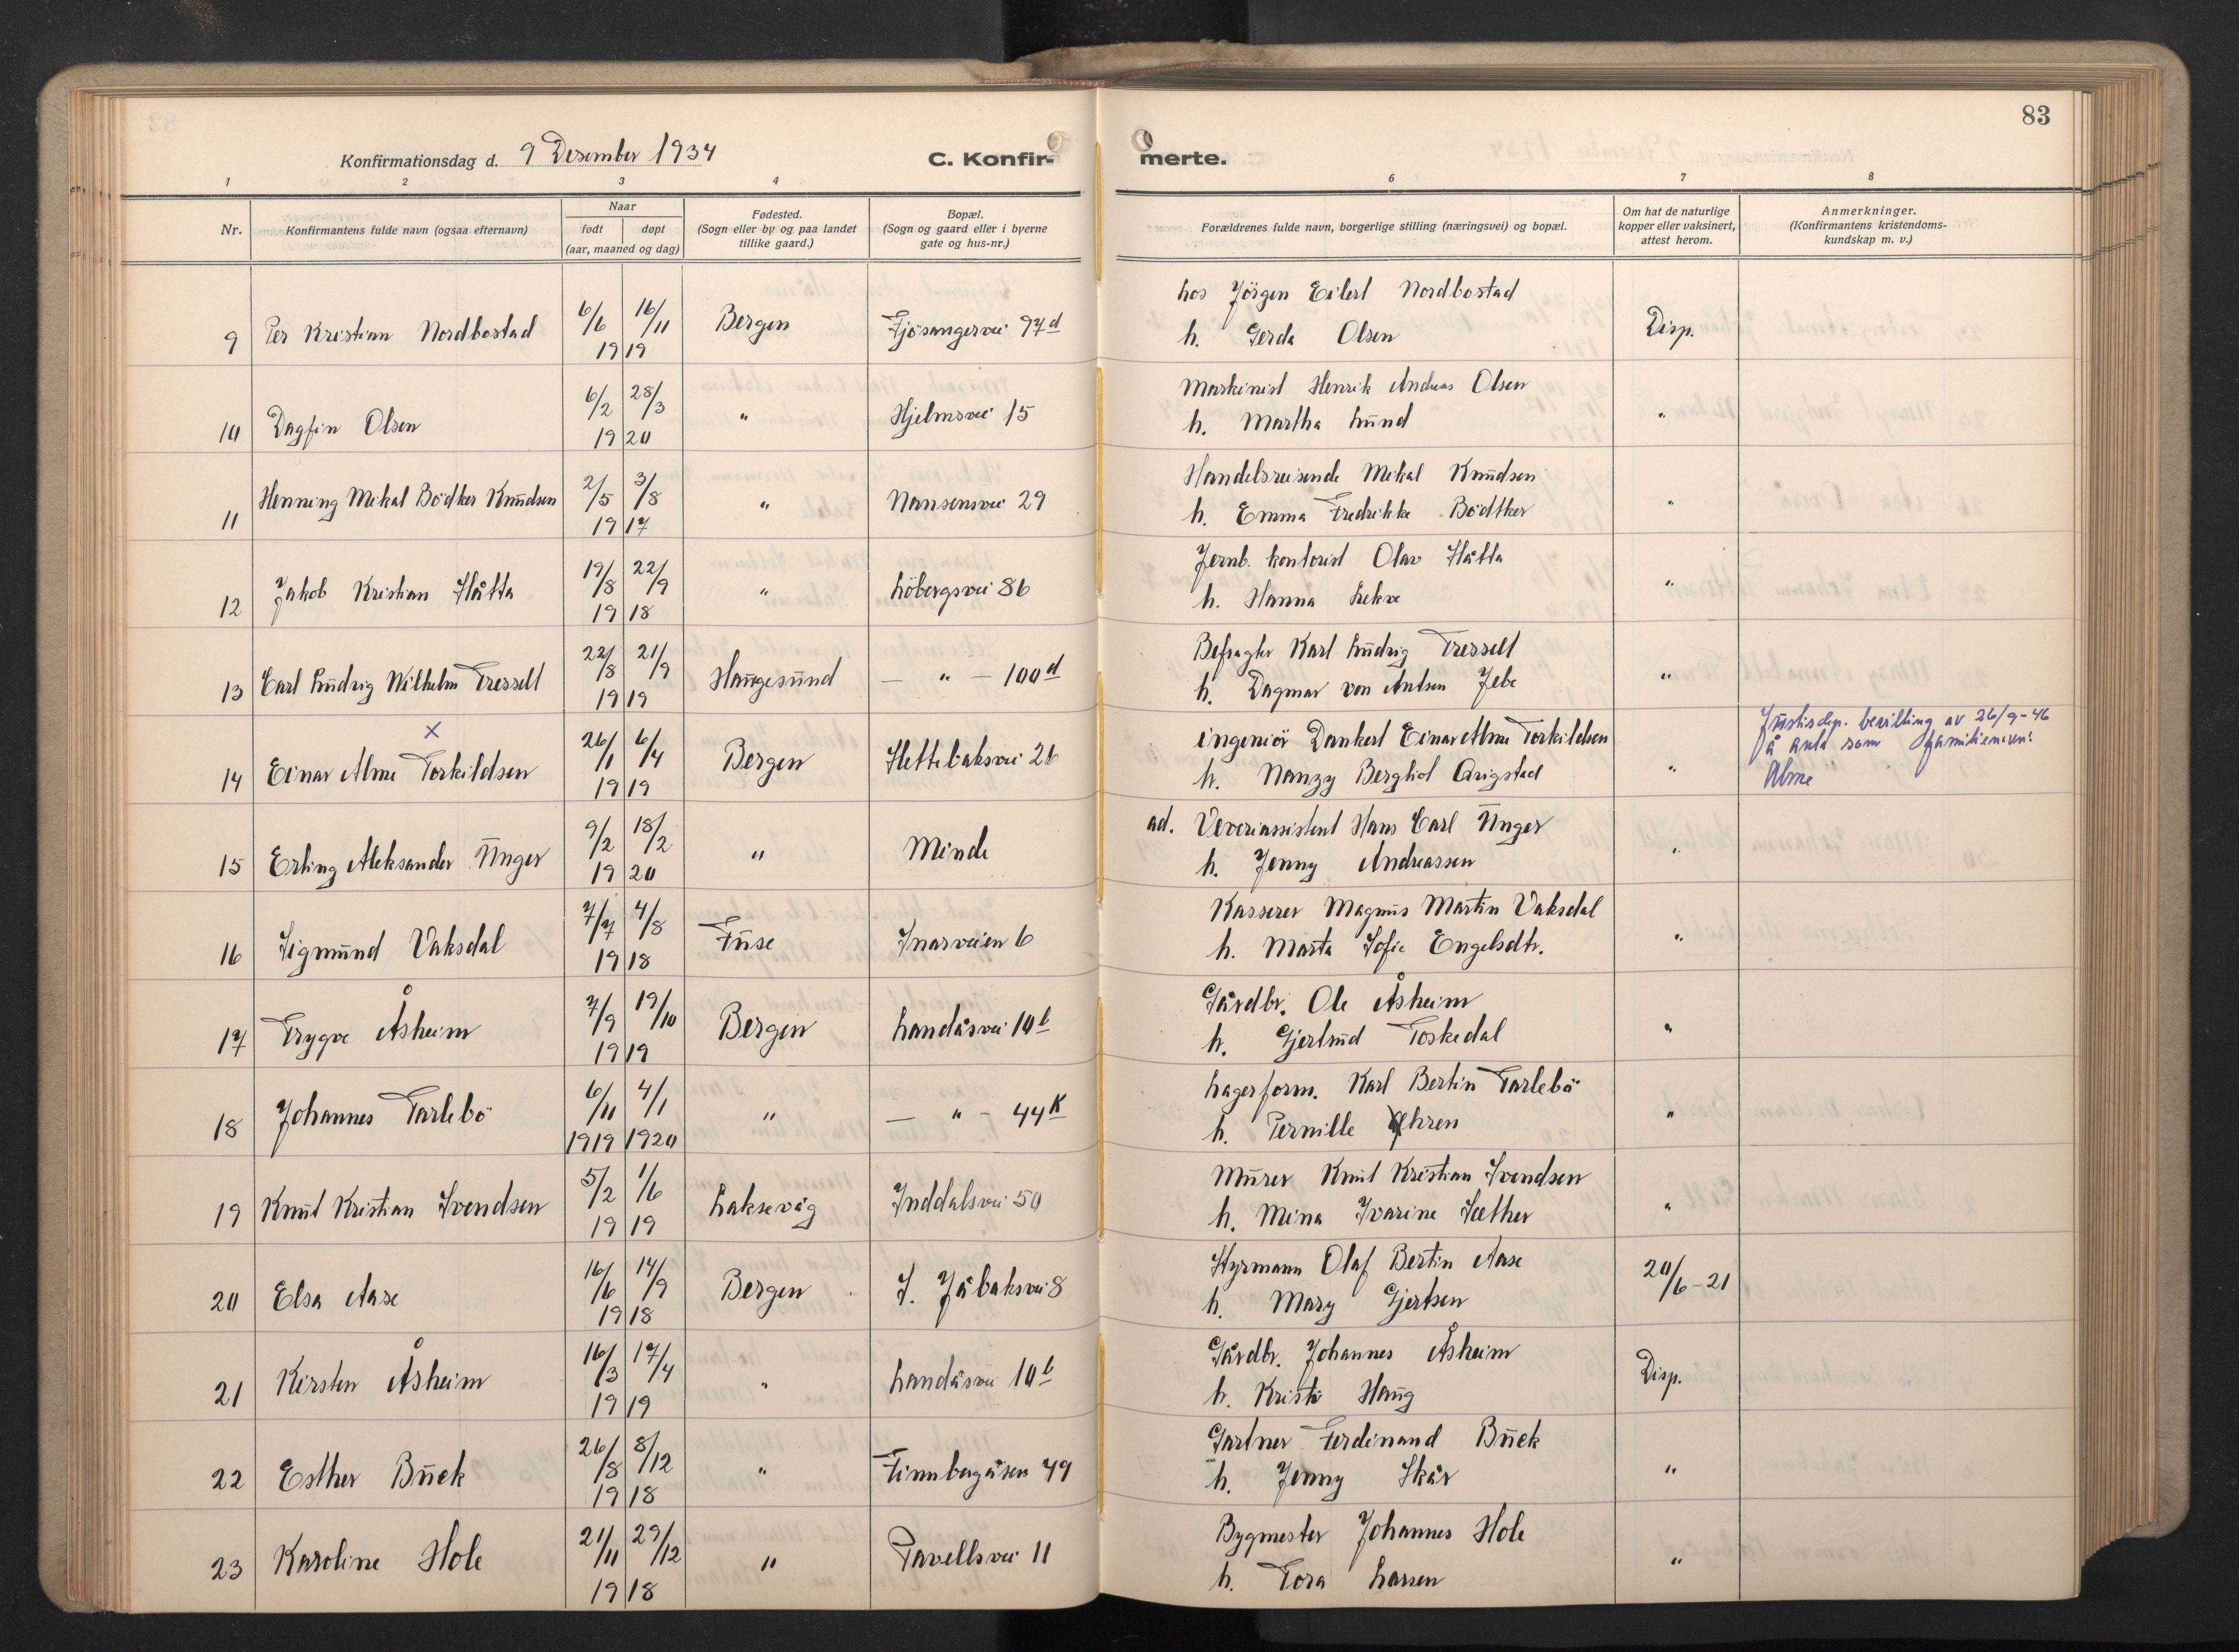 83
Konfirmationsdag d. 9 Desember 1934
C. Konfir-merte.
1 2 3 4 6 7 8
Nr.
Konfirmantens fulde navn (ogsaa efternavn)
Naar
født døpt
(aar, maaned og dag)
Fødested.
(Sogn eller by og paa landet
tillike gaard.)
Bopæl.
(Sogn og gaard eller i byerne
gate og hus-nr.)
Forældrenes fulde navn, borgerlige stilling (næringsvei) og bopæl.
Om hat de naturlige
kopper eller vaksinert,
attest herom.
Anmerkninger.
(Konfirmantens kristendoms-
kundskap m. v.)
hos Jörgen Eilert Nordbostad
9 Per Kristian Nordbostad 6/6 16/11 1919 Bergen Fjösangervei 97d h. Gerda Olsen Disp.
Maskinist Henrik Andreas Olsen
10 Dagfin Olsen 6/2 28/3 1920 " Hjelmsvei 15 h. Martha Lund "
Handelsreisende Mekal Knudsen
11 Henning Mekal Bödker Knudsen 2/5 3/8 1917 " Nansensvei 29 h. Emma Fredrikke Bödtker "
Jernb. kontorist Olav Håtta
12 Jakob Kristian Håtta 19/8 22/9 1918 " Löbergsvei 86 h. Hanna Lekve "
Befragter Karl Ludvig Tresselt
13 Carl Ludvig Wilhelm Tresselt 22/8 21/9 1919 Haugesund — " — 100d h. Dagmar von Jebe "
ingeniör Dankert Einar Alme Torkildsen
Justisdep. bevilling av 26/9-46
å anta som familienavn:
Alme
x
14 Einar Alme Torkildsen 26/1 6/4 1919 Bergen Slettebaksvei 26 h. Nanzy Berghot "
ad. Veveriassistent Hans Carl Unger
15 Erling Aleksander Unger 9/2 18/2 1920 " Minde h. Jenny Andreassen "
Kasserer Magnus Martin Vaksdal
16 Sigmund Vaksdal 7/7 4/8 1918 Fuse Ivarsveien 6 h. Marta Sofie Engelsdtr. "
Gårdbr. Ole Åsheim
17 Trygve Åsheim 7/9 19/10 1919 Bergen Landåsvei 10b h. Gjertrud Toskedal "
Lagerform. Karl Bertin Tarlebö
18 Johannes Tarlebö 6/11 4/1 1919 1920 " — " — 44K h. Pernille Øhren "
Murer Knut Kristian Svendsen
19 Knut Kristian Svendsen 5/2 1/6 1919 Laksevåg Inddalsvei 50 h. Mina Ivarine Sæther "
Styrmann Olaf Bertin Aase
20 Elsa Aase 16/6 14/9 1918 Bergen J. Jåbaksvei 8 h. Mary Gjertsen 20/6-21
Gårdbr. Johannes Åsheim
21 Kirsten Åsheim 16/3 17/4 1919 " Landåsvei 10b h. Kristi Haug Disp.
Gartner Ferdinand Buek
22 Esther Buek 26/8 8/12 1918 " Finnbergåsen 49 h. Jenny Skår "
Bygmester Johannes Hole
23 Karoline Hole 21/11 29/12 1918 " Pavellsvei 11 h. Tora Larsen "